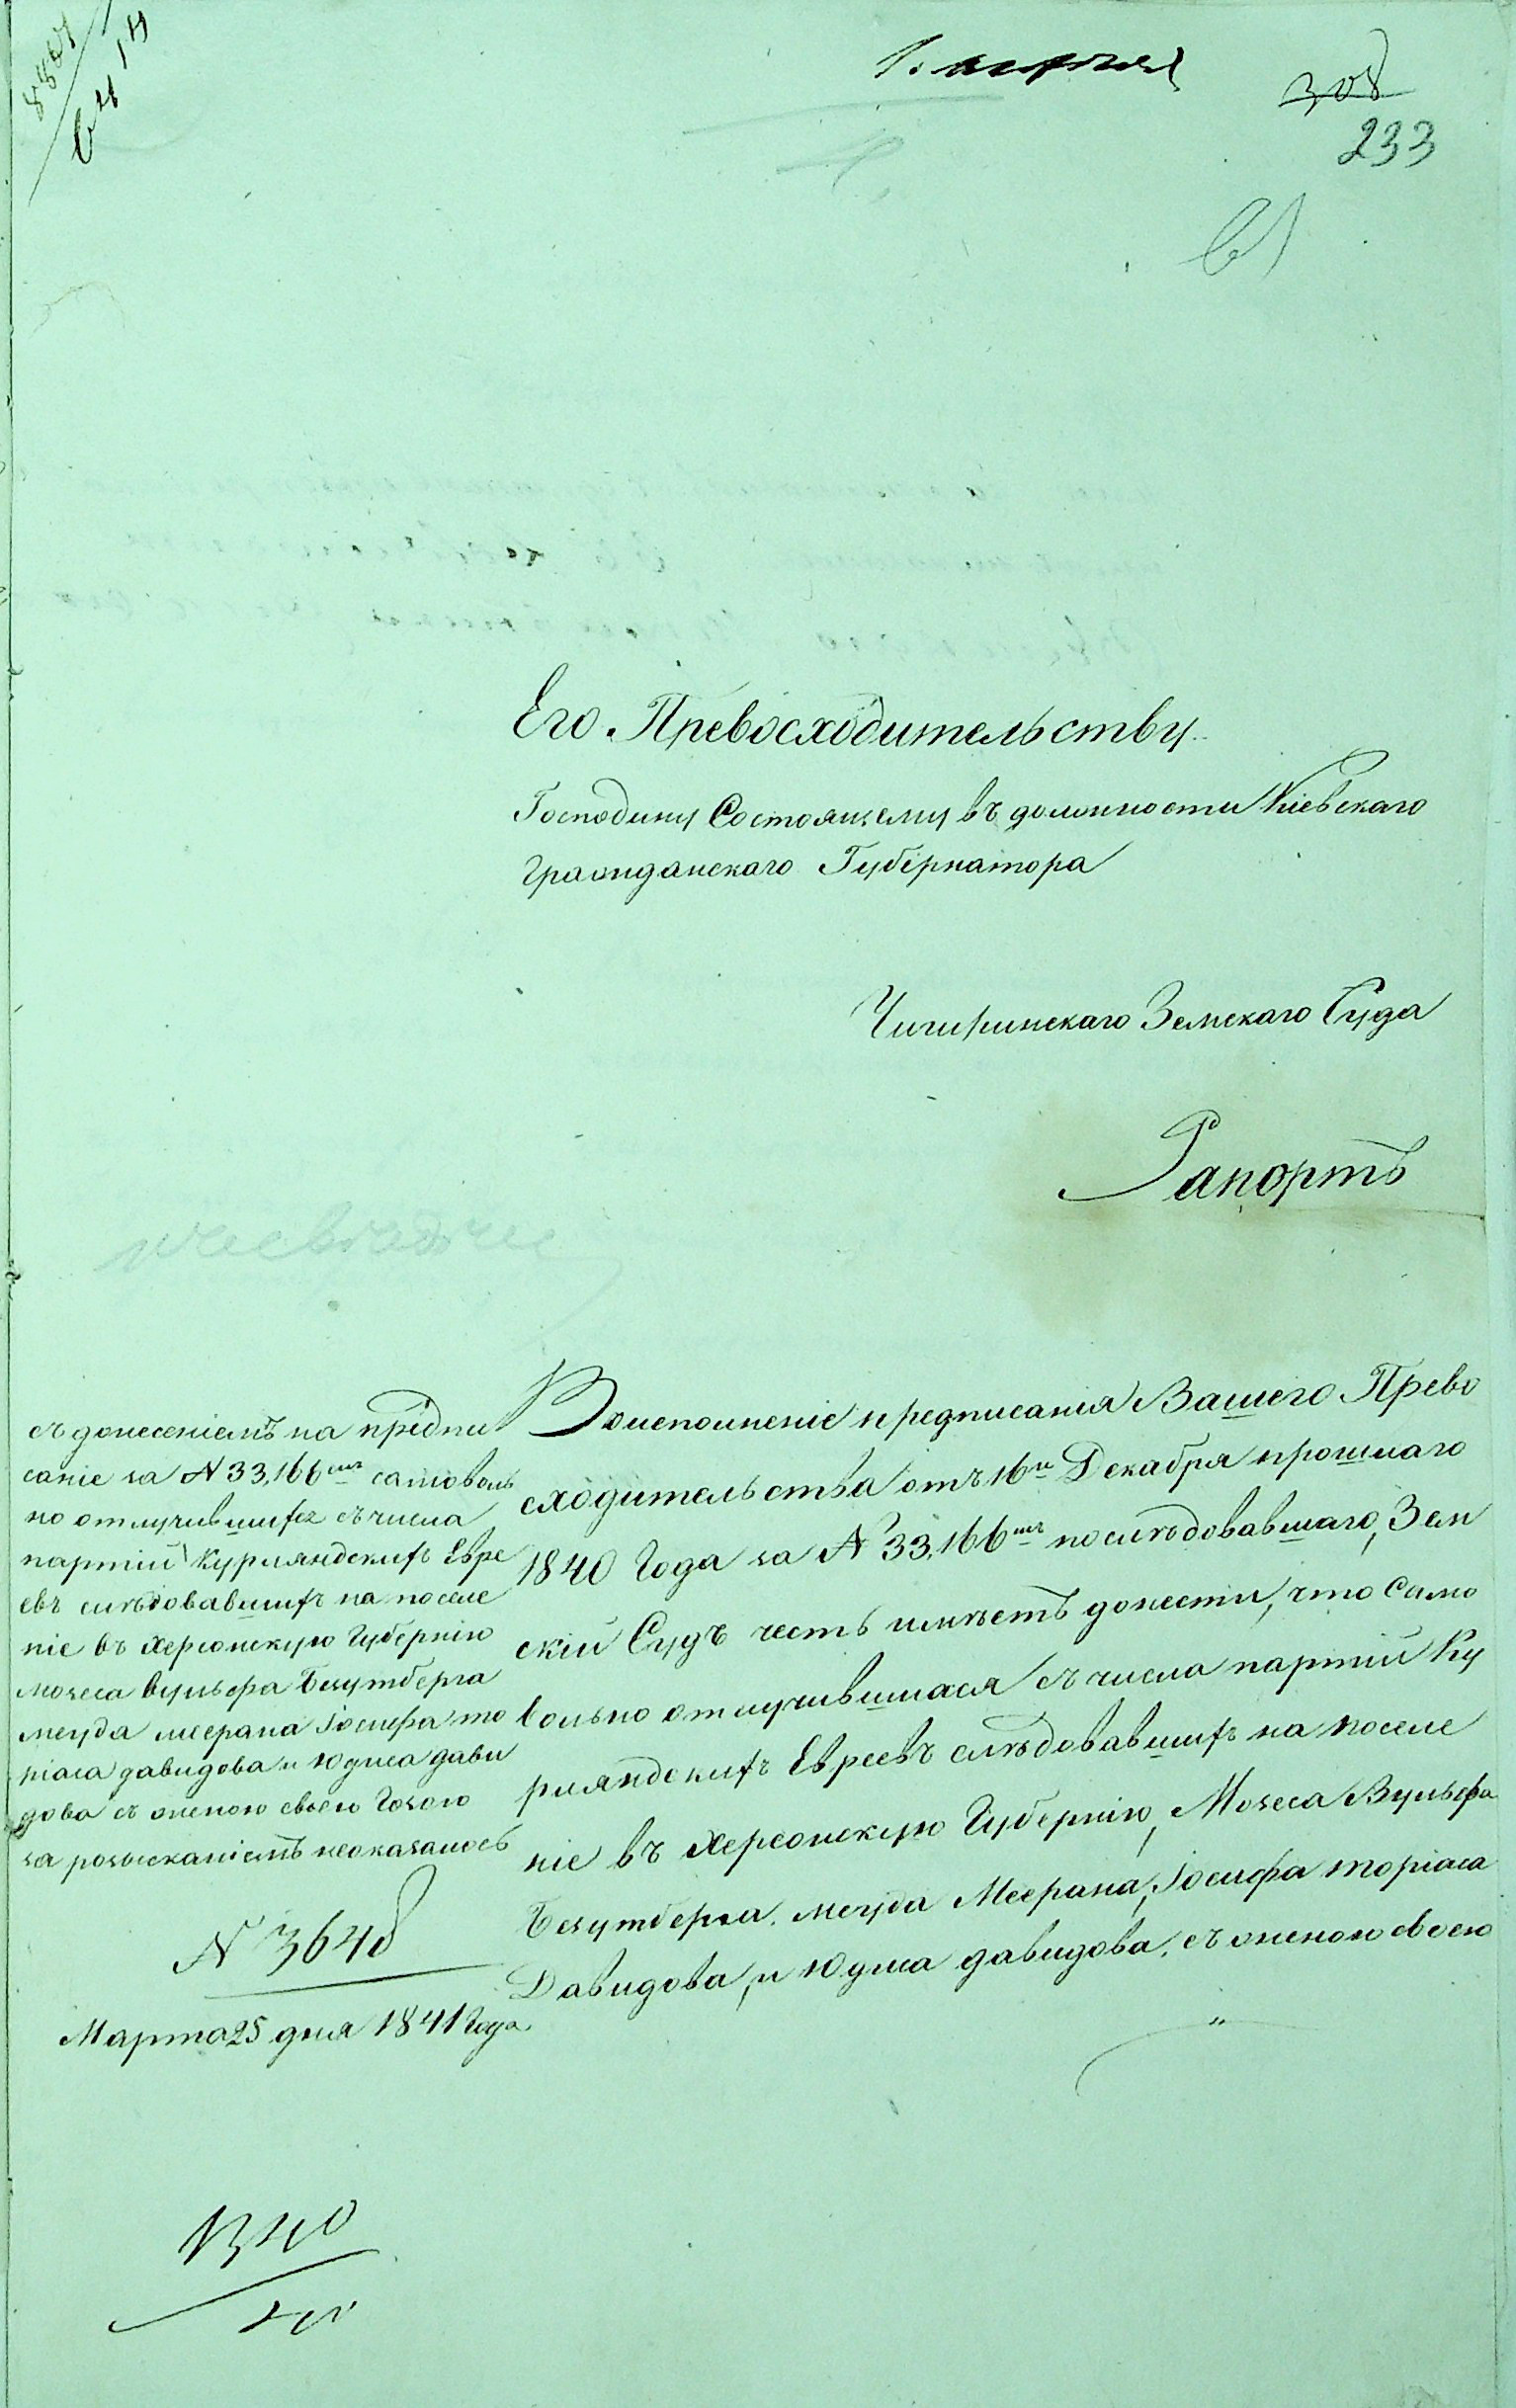 8807
64 14
1. апреля
308
233
Его Превосходительству
Господину Состоящему въ должности Кіевскаго
Гражданскаго Губернатора
Чигиринскаго Земскаго Суда
Рапортъ
съ донесеніемъ на предпи
саніе за N 33,166мъ самоволь
но отлучившихъ съ числа
партіи Курляндскихъ Евре
евъ слѣдовавшихъ на поселе
ніе въ Херсонскую Губернію
Мозеса Вульфа
Меерана Іосифа то
ріаса давидова и Юдиса дави
дова съ женою своею
за розысканіемъ неоказалось
N 3648
Марта 25 дня 1841 Года.
Воисполненіе предписанія Вашего Прево
сходительства отъ 16го Декабря прошлаго
1840 Года за N 33,166мъ послѣдовавшаго, Зем
скій Судъ честь имѣетъ донести, что Само
вольно отлучившиася съ числа партіи Ку
рляндскихъ Евреевъ слѣдовавшихъ на поселе
ніе въ Херсонскую Губернію, Мозеса Вульфа
Меерана, Іосифа торіаса
Давидова, и Юдиса давидова, съ женою своею
1340